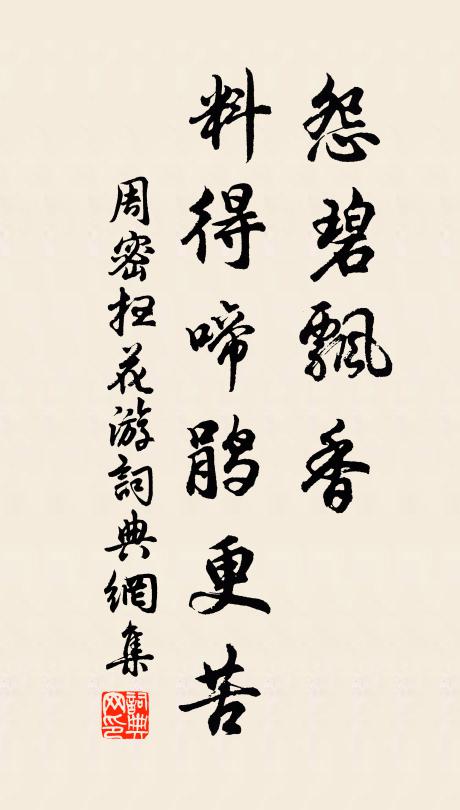 怨碧飄香
料得啼鵑更苦
周密掃花游詞典網集
詞典网印